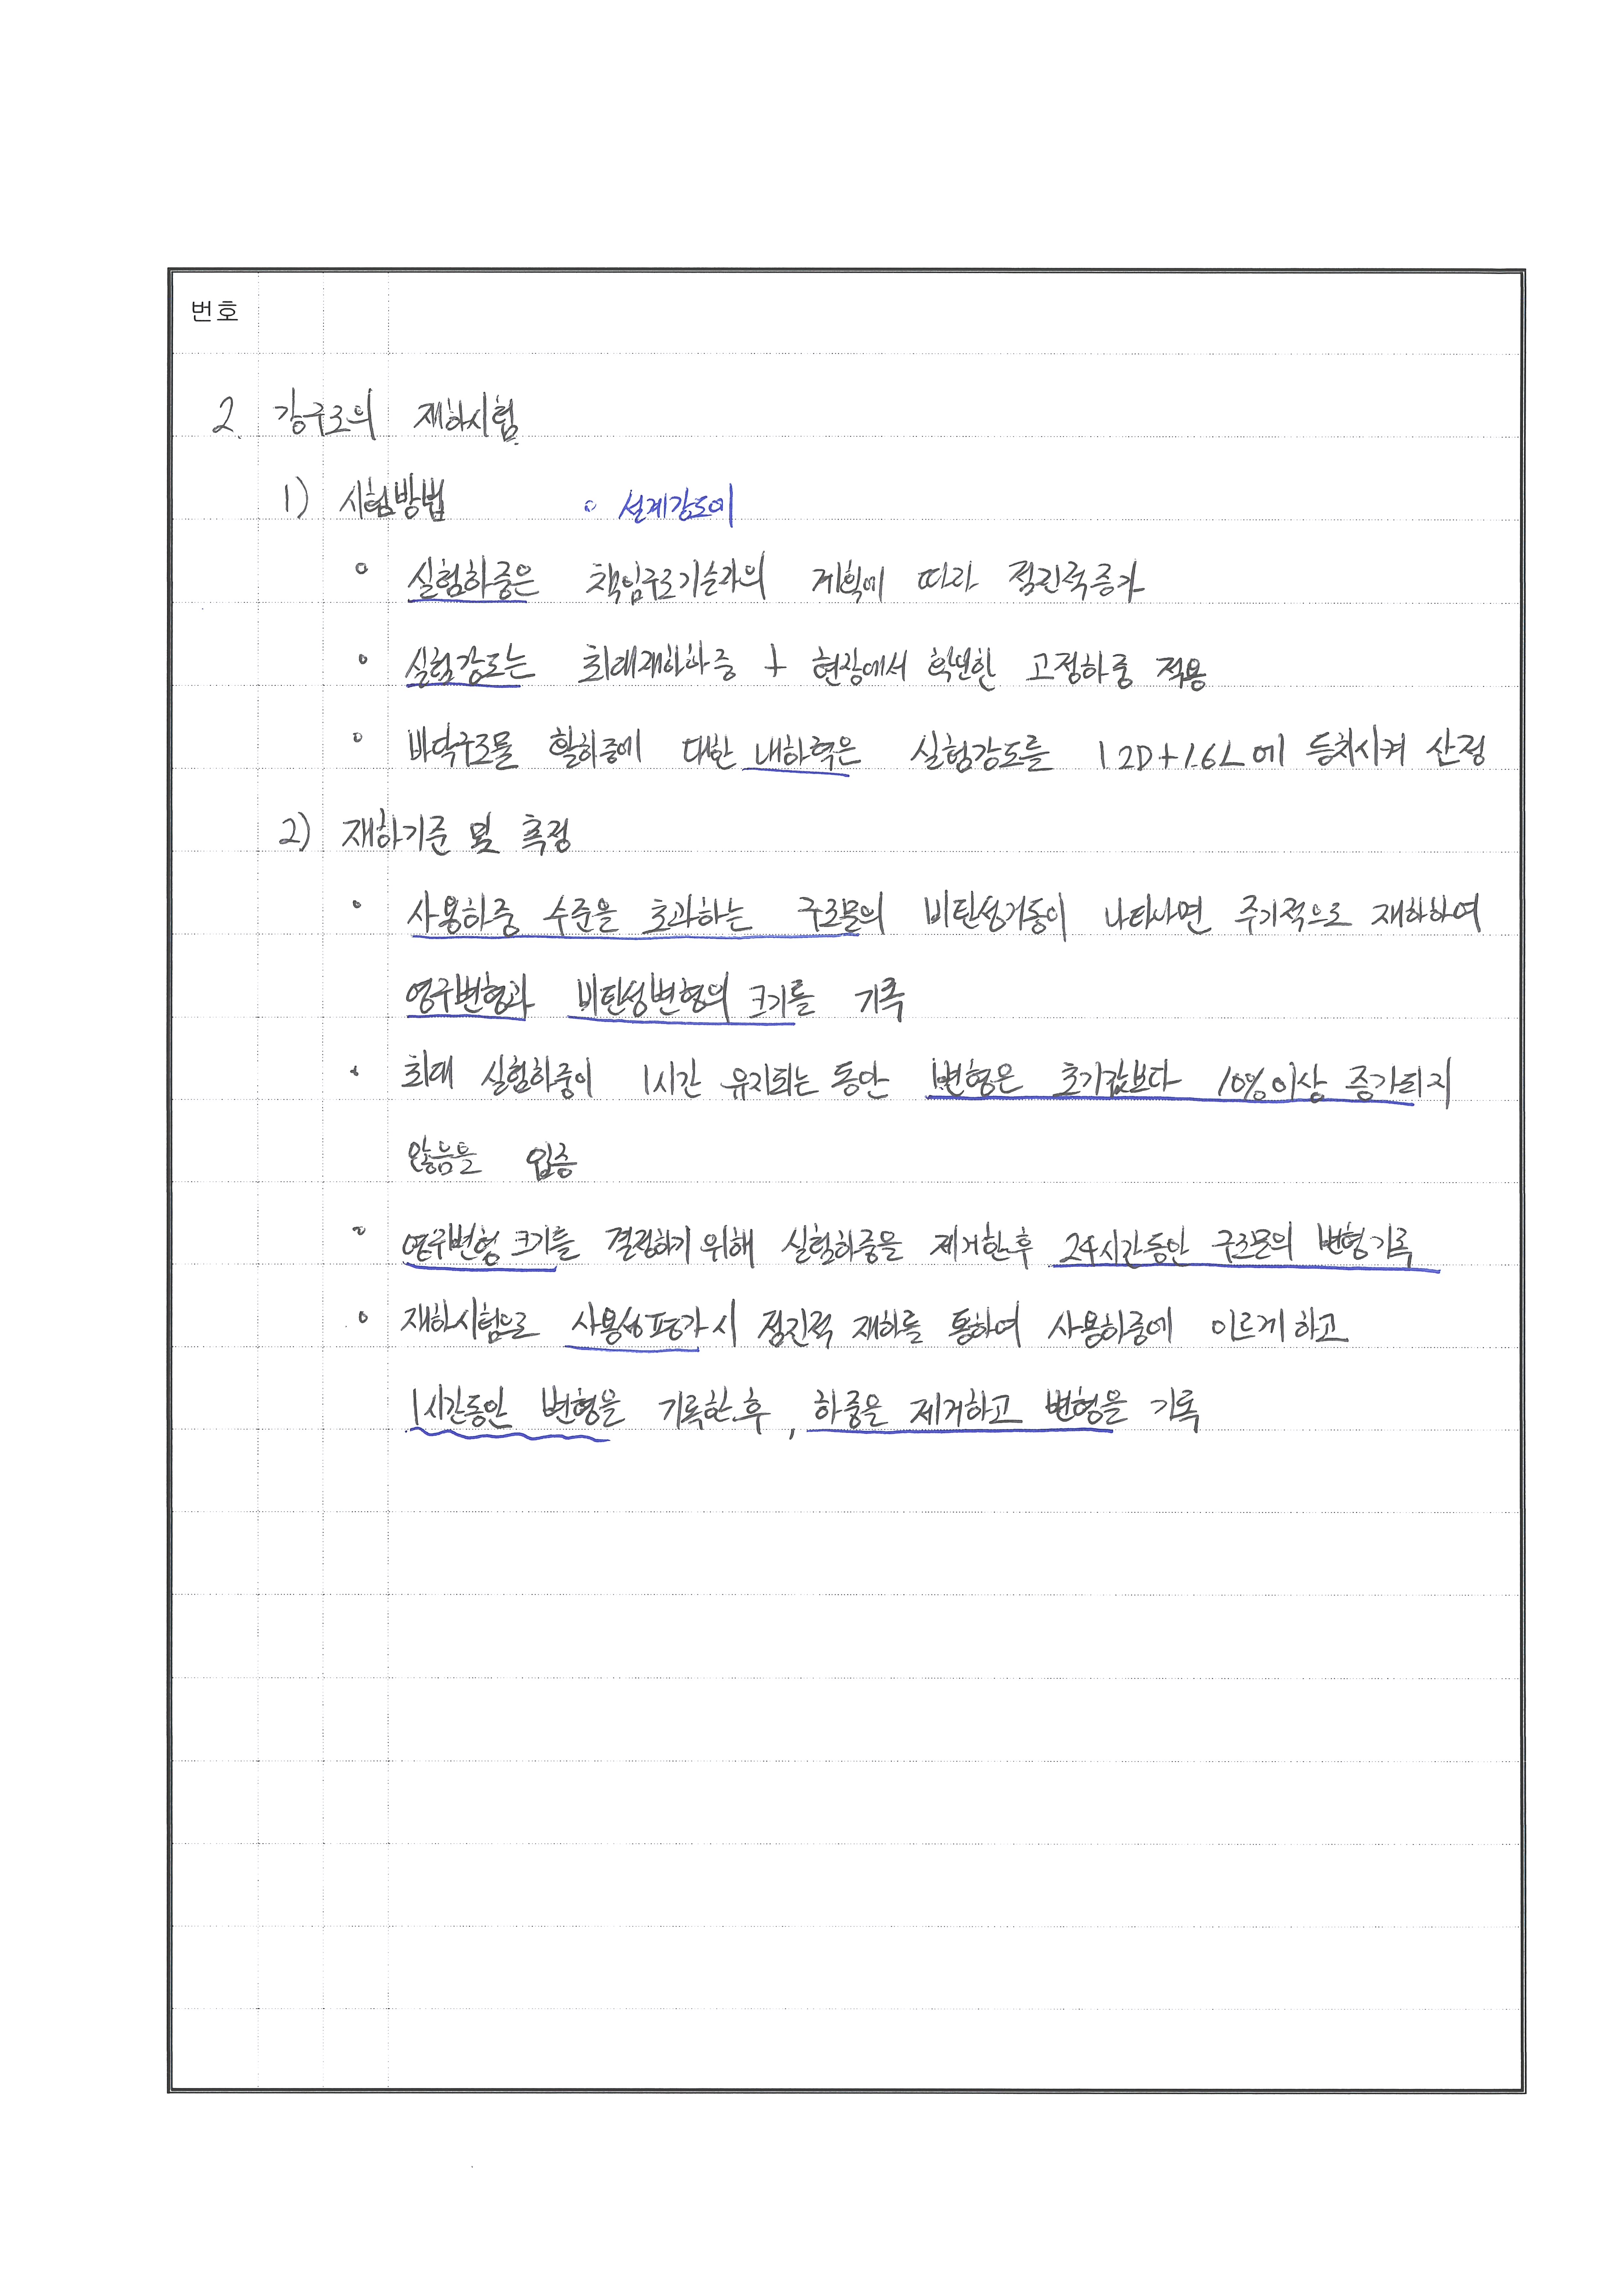 번호
2. 강구조의 재하시험
1) 시험방법 ◦ 설계강도에
◦ 실험하중은 책임구조기술자의 계획에 따라 점진적증가
◦ 실험강도는 최대재하하중 + 현장에서 확인한 고정하중 적용
◦ 바닥구조물 활하중에 대한 내하력은 실험강도를 1.2D+1.6L에 등치시켜 산정
2) 재하기준 및 측정
◦ 사용하중 수준을 초과하는 구조물의 비탄성거동이 나타나면 주기적으로 재하하여
영구변형과 비탄성변형의 크기를 기록
◦ 최대 실험하중이 1시간 유지되는 동안 변형은 초기값보다 10%이상 증가되지
않음을 입증
◦ 영구변형 크기를 결정하기 위해 실험하중을 제거한후 24시간동안 구조물의 변형기록
◦ 재하시험으로 사용성평가시 점진적 재하를 통하여 사용하중에 이르게 하고
1시간동안 변형을 기록한후, 하중을 제거하고 변형을 기록